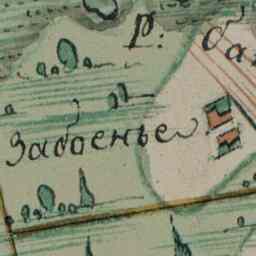 р: ба
Забоенье